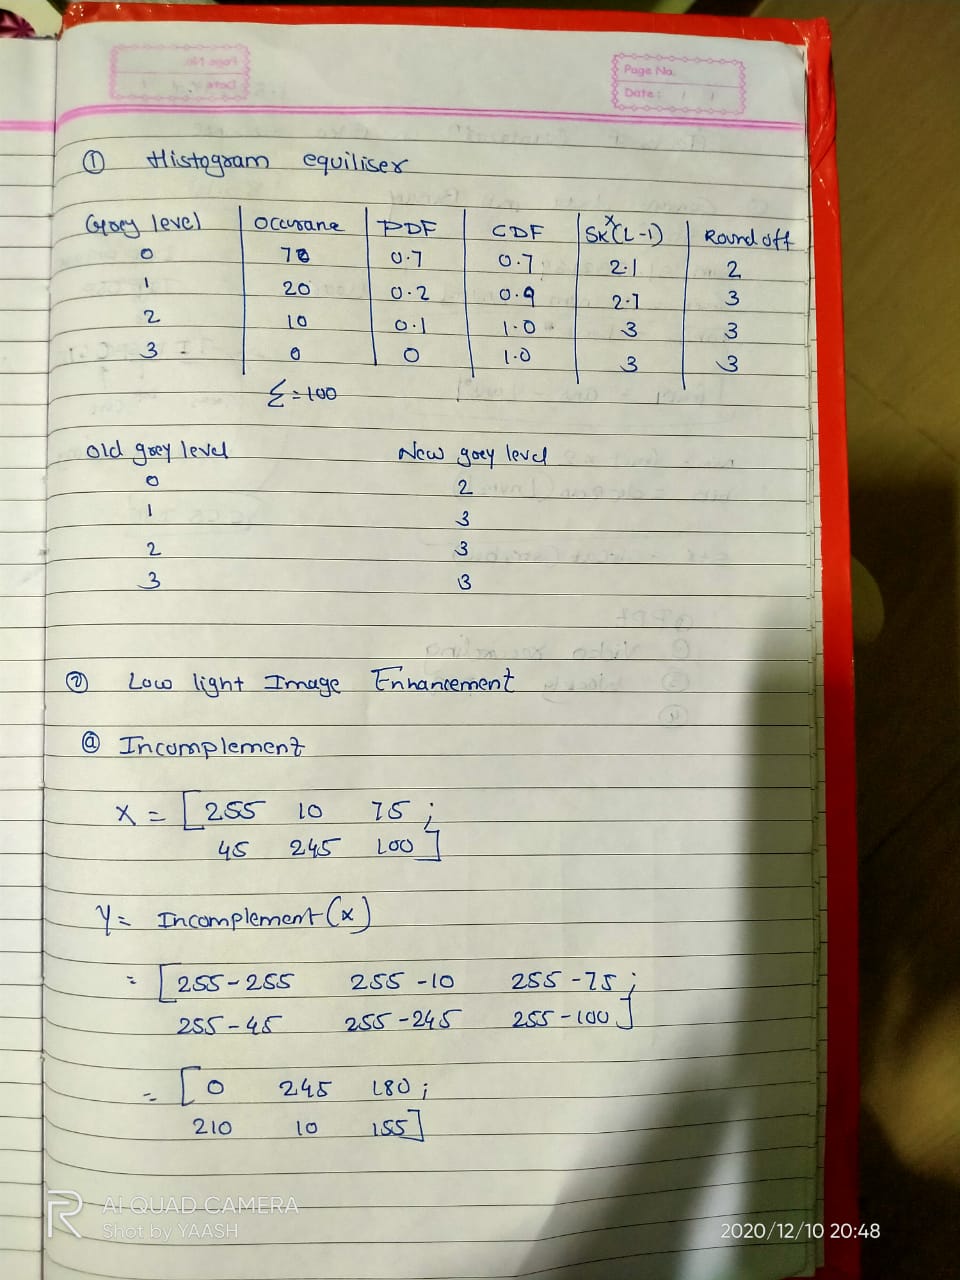 Page No.
Date:
① Histogram equiliser
Grey level | Occurane | PDF | CDF | SK×(L-1) | Round off
0 | 70 | 0.7 | 0.7 | 2.1 | 2
1 | 20 | 0.2 | 0.9 | 2.7 | 3
2 | 10 | 0.1 | 1.0 | 3 | 3
3 | 0 | 0 | 1.0 | 3 | 3
Σ=100
Old grey level New grey level
0 2
1 3
2 3
3 3
② Low light Image Enhancement
ⓐ Incomplement
X = [255 10 75;
45 245 100]
Y= Incomplement(x)
= [255-255 255-10 255-75;
255-45 255-245 255-100]
= [0 245 180;
210 10 155]
AI QUAD CAMERA
Shot by YAASH
2020/12/10 20:48